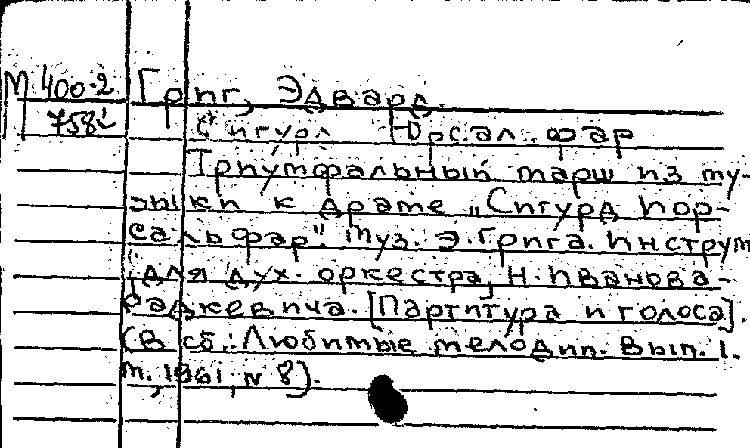 М 400-2 Григ, Эдвард.
758 Сигурд Юрсальфар
Триумфальный марш из му-
зыки к драме „Сигурд Иор-
сальфар". Муз. Э. Грига. Инструм
для дух. оркестра, Н. Иванова-
Радкевича. [Партитура и голоса].
(В сб.: Любимые мелодии. Вып. 1.
М., 1961, № 8).